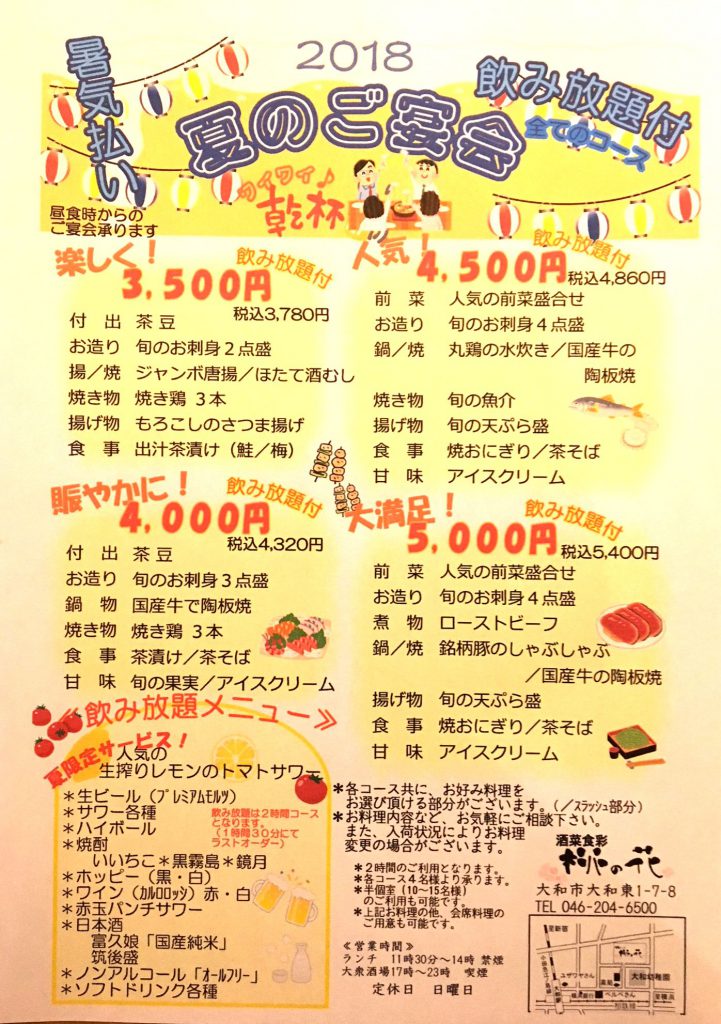 2018
暑気払い
夏のご宴会
飲み放題付
全てのコース
ワイワイ♪
乾杯
昼食時からの
ご宴会承ります
楽しく!
飲み放題付
3,500円
税込3,780円
付 出 茶豆
お造り 旬のお刺身２点盛
揚／焼 ジャンボ唐揚／ほたて酒むし
焼き物 焼き鶏 ３本
揚げ物 もろこしのさつま揚げ
食 事 出汁茶漬け（鮭／梅）
人気!
飲み放題付
4,500円
税込4,860円
前 菜 人気の前菜盛合せ
お造り 旬のお刺身４点盛
鍋／焼 丸鶏の水炊き／国産牛の
陶板焼
焼き物 旬の魚介
揚げ物 旬の天ぷら盛
食 事 焼おにぎり／茶そば
甘 味 アイスクリーム
賑やかに!
飲み放題付
4,000円
税込4,320円
付 出 茶豆
お造り 旬のお刺身３点盛
鍋 物 国産牛で陶板焼
焼き物 焼き鶏 ３本
食 事 茶漬け／茶そば
甘 味 旬の果実／アイスクリーム
大満足!
飲み放題付
5,000円
税込5,400円
前 菜 人気の前菜盛合せ
お造り 旬のお刺身４点盛
煮 物 ローストビーフ
鍋／焼 銘柄豚のしゃぶしゃぶ
／国産牛の陶板焼
揚げ物 旬の天ぷら盛
食 事 焼おにぎり／茶そば
甘 味 アイスクリーム
≪飲み放題メニュー≫
夏限定サービス!
人気の
生搾りレモンのトマトサワー
＊生ビール（ﾌﾟﾚﾐｱﾑﾓﾙﾂ）
＊サワー各種
＊ハイボール
＊焼酎
いいちこ＊黒霧島＊鏡月
＊ホッピー（黒・白）
＊ワイン（ｶﾙﾛﾛｯｼ）赤・白
＊赤玉パンチサワー
＊日本酒
富久娘「国産純米」
筑後盛
＊ノンアルコール「ｵｰﾙﾌﾘｰ」
＊ソフトドリンク各種
飲み放題は２時間コース
となります。
（１時間３０分にて
ラストオーダー）
＊各コース共に、お好み料理を
お選び頂ける部分がございます。(／ｽﾗｯｼｭ部分)
＊お料理内容など、お気軽にご相談下さい。
また、入荷状況によりお料理
変更の場合がございます。
＊２時間のご利用となります。
＊各コース４名様より承ります。
＊半個室（10～15名様）
のご利用も可能です。
＊上記お料理の他、会席料理の
ご用意も可能です。
≪営業時間≫
ランチ 11時30分～14時 禁煙
大衆酒場17時～23時 喫煙
定休日 日曜日
酒菜食彩
桃の花
大和市大和東1-7-8
TEL 046-204-6500
至新宿
桃の花
ユザワヤさん
薬局
大和幼稚園
横浜銀行
ベルベさん
至横浜
相鉄線